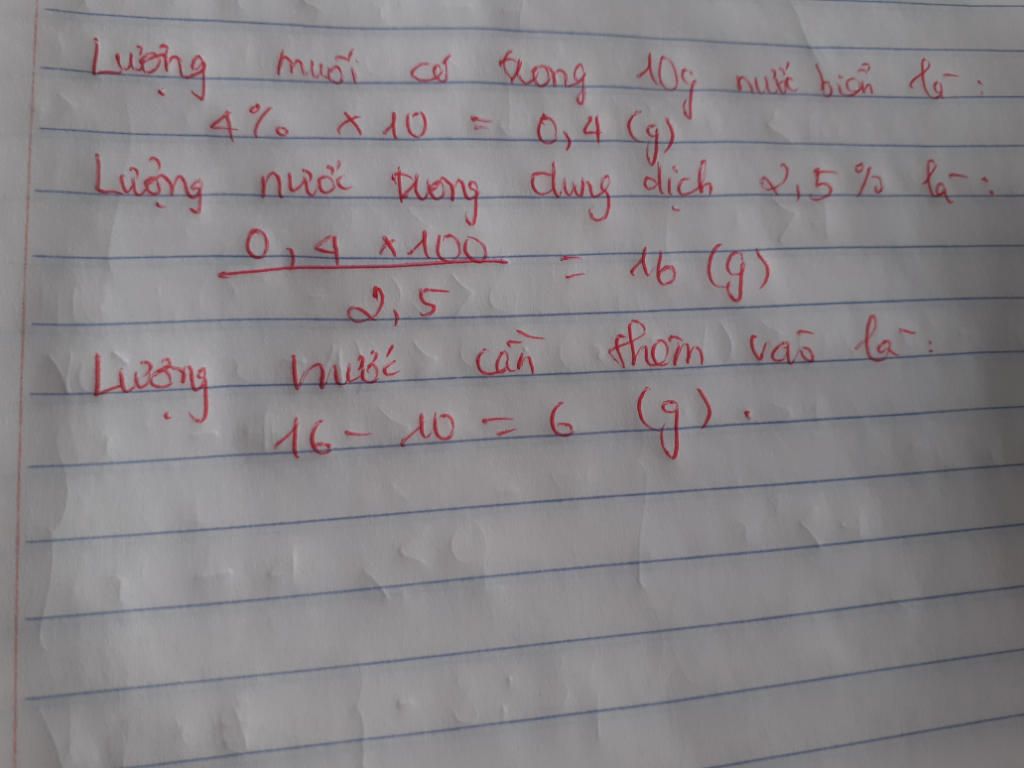 Lượng muối có trong 10g nước biển là:
4% × 10 = 0,4 (g)
Lượng nước trong dung dịch 2,5% là:
0,4 × 100
2,5
= 16 (g)
Lượng nước cần thêm vào là:
16 - 10 = 6 (g).